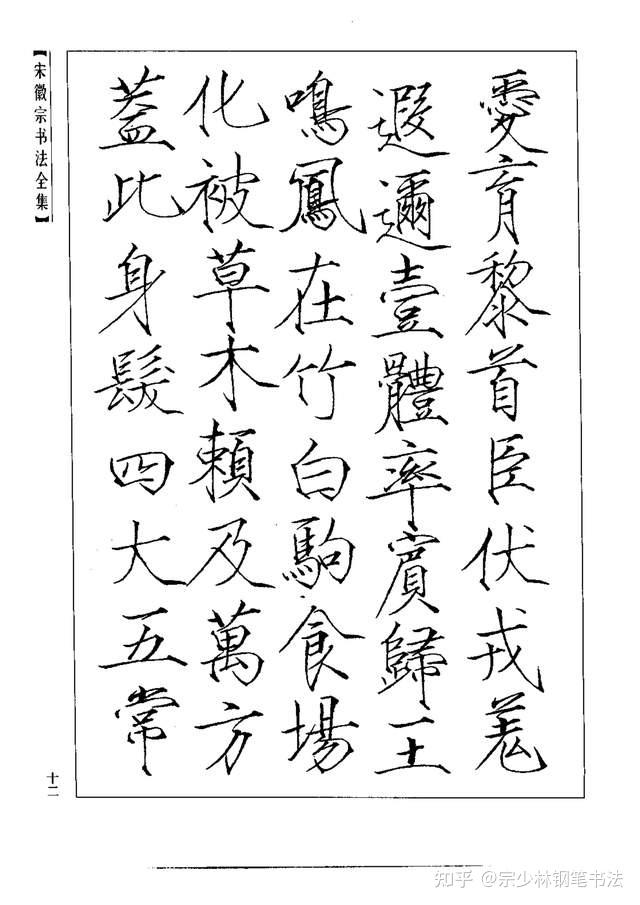 愛育黎首臣伏戎羌
遐邇壹體率賓歸王
鳴鳳在竹白駒食場
化被草木賴及萬方
蓋此身髮四大五常
【宋徽宗书法全集】
十二
知乎 @宗少林钢笔书法